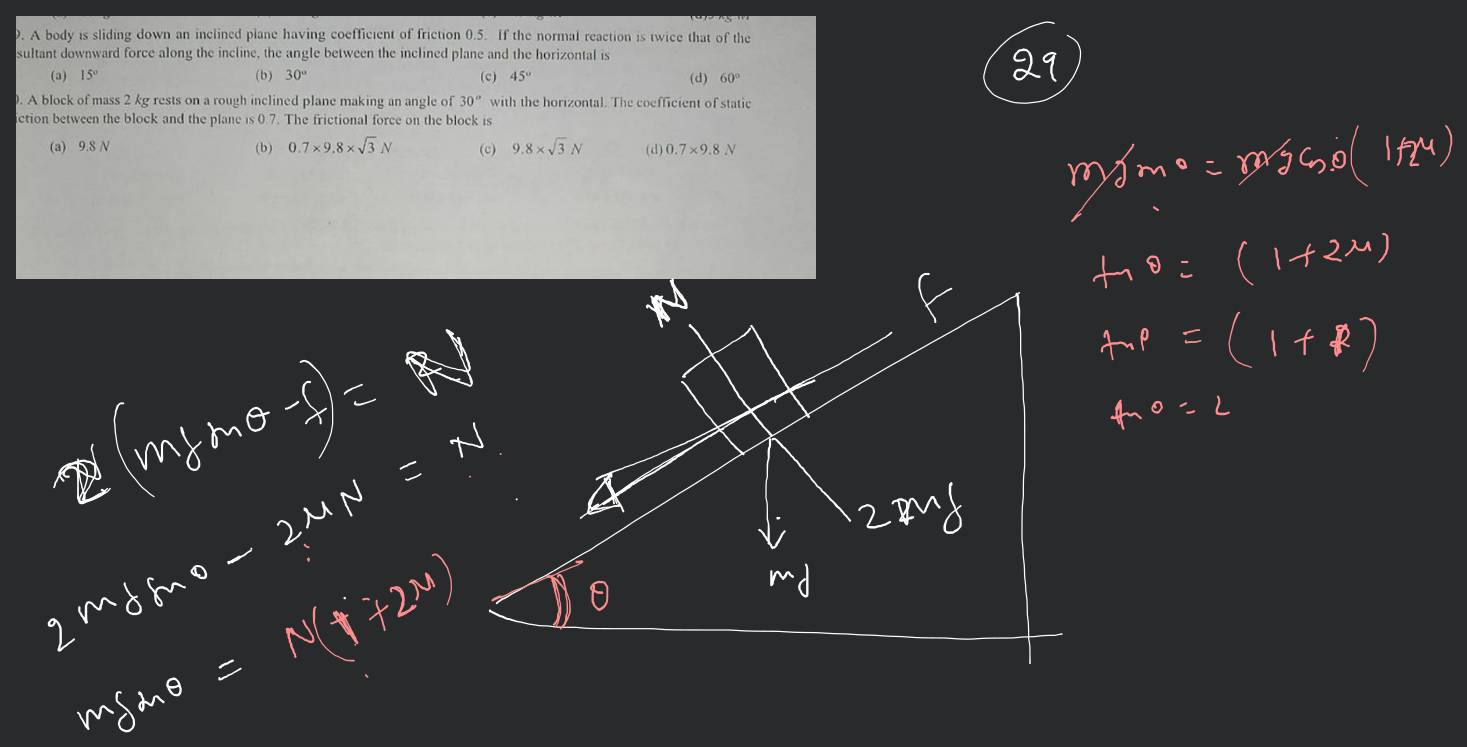 . A body is sliding down an inclined plane having coefficient of friction 0.5. If the normal reaction is twice that of the
sultant downward force along the incline, the angle between the inclined plane and the horizontal is
(a) 15° (b) 30° (c) 45° (d) 60°
. A block of mass 2 kg rests on a rough inclined plane making an angle of 30° with the horizontal. The coefficient of static
iction between the block and the plane is 0.7. The frictional force on the block is
(a) 9.8 N (b) 0.7 × 9.8 × √3 N (c) 9.8 × √3 N (d) 0.7 × 9.8 N
29
N
F
mg
θ
2(mg sin θ - f) = N
2mg sin θ - 2μN = N
mg sin θ = N(1+2μ)
mg sin θ = mg cos θ(1+2μ)
tan θ = (1+2μ)
tan θ = (1+
tan θ = 2